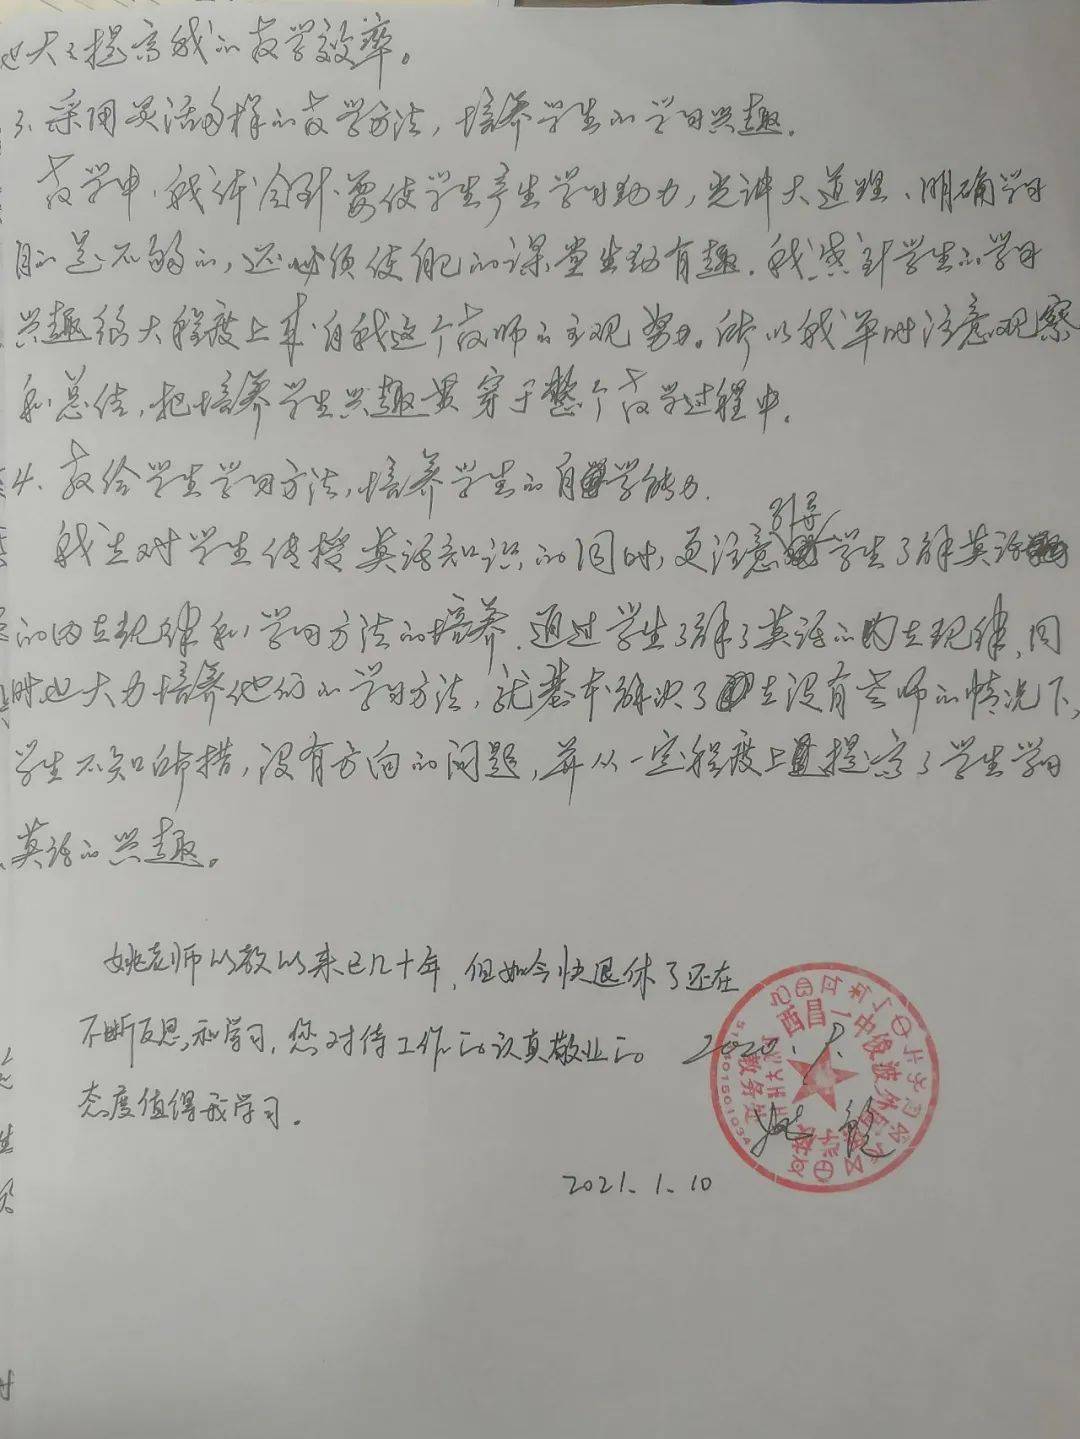 也大大提高我的教学效率。
3、采用灵活多样的教学方法，培养学生的学习兴趣。
教学中，我体会到要使学生产生学习动力，光讲大道理、明确学习
目的是不够的，还必须使自己的课堂生动有趣。我感到学生的学习
兴趣很大程度上来自我这个教师的主观努力。所以我平时注意观察
和总结，把培养学生兴趣贯穿于整个教学过程中。
4、教给学生学习方法，培养学生的自学能力。
我在对学生传授英语知识的同时，更注意引导学生了解英语
的内在规律和学习方法的培养。通过学生了解了英语的内在规律，同
时也大力培养他们的学习方法，就基本解决了在没有老师的情况下，
学生不知所措，没有方向的问题，并从一定程度上提高了学生学习
英语的兴趣。
姚老师以教以来已几十年，但如今快退休了还在
不断反思和学习，您对待工作的认真敬业的
态度值得我学习。
2020.
姚
2021.1.10
西昌一中俊波外国语学校
教务处